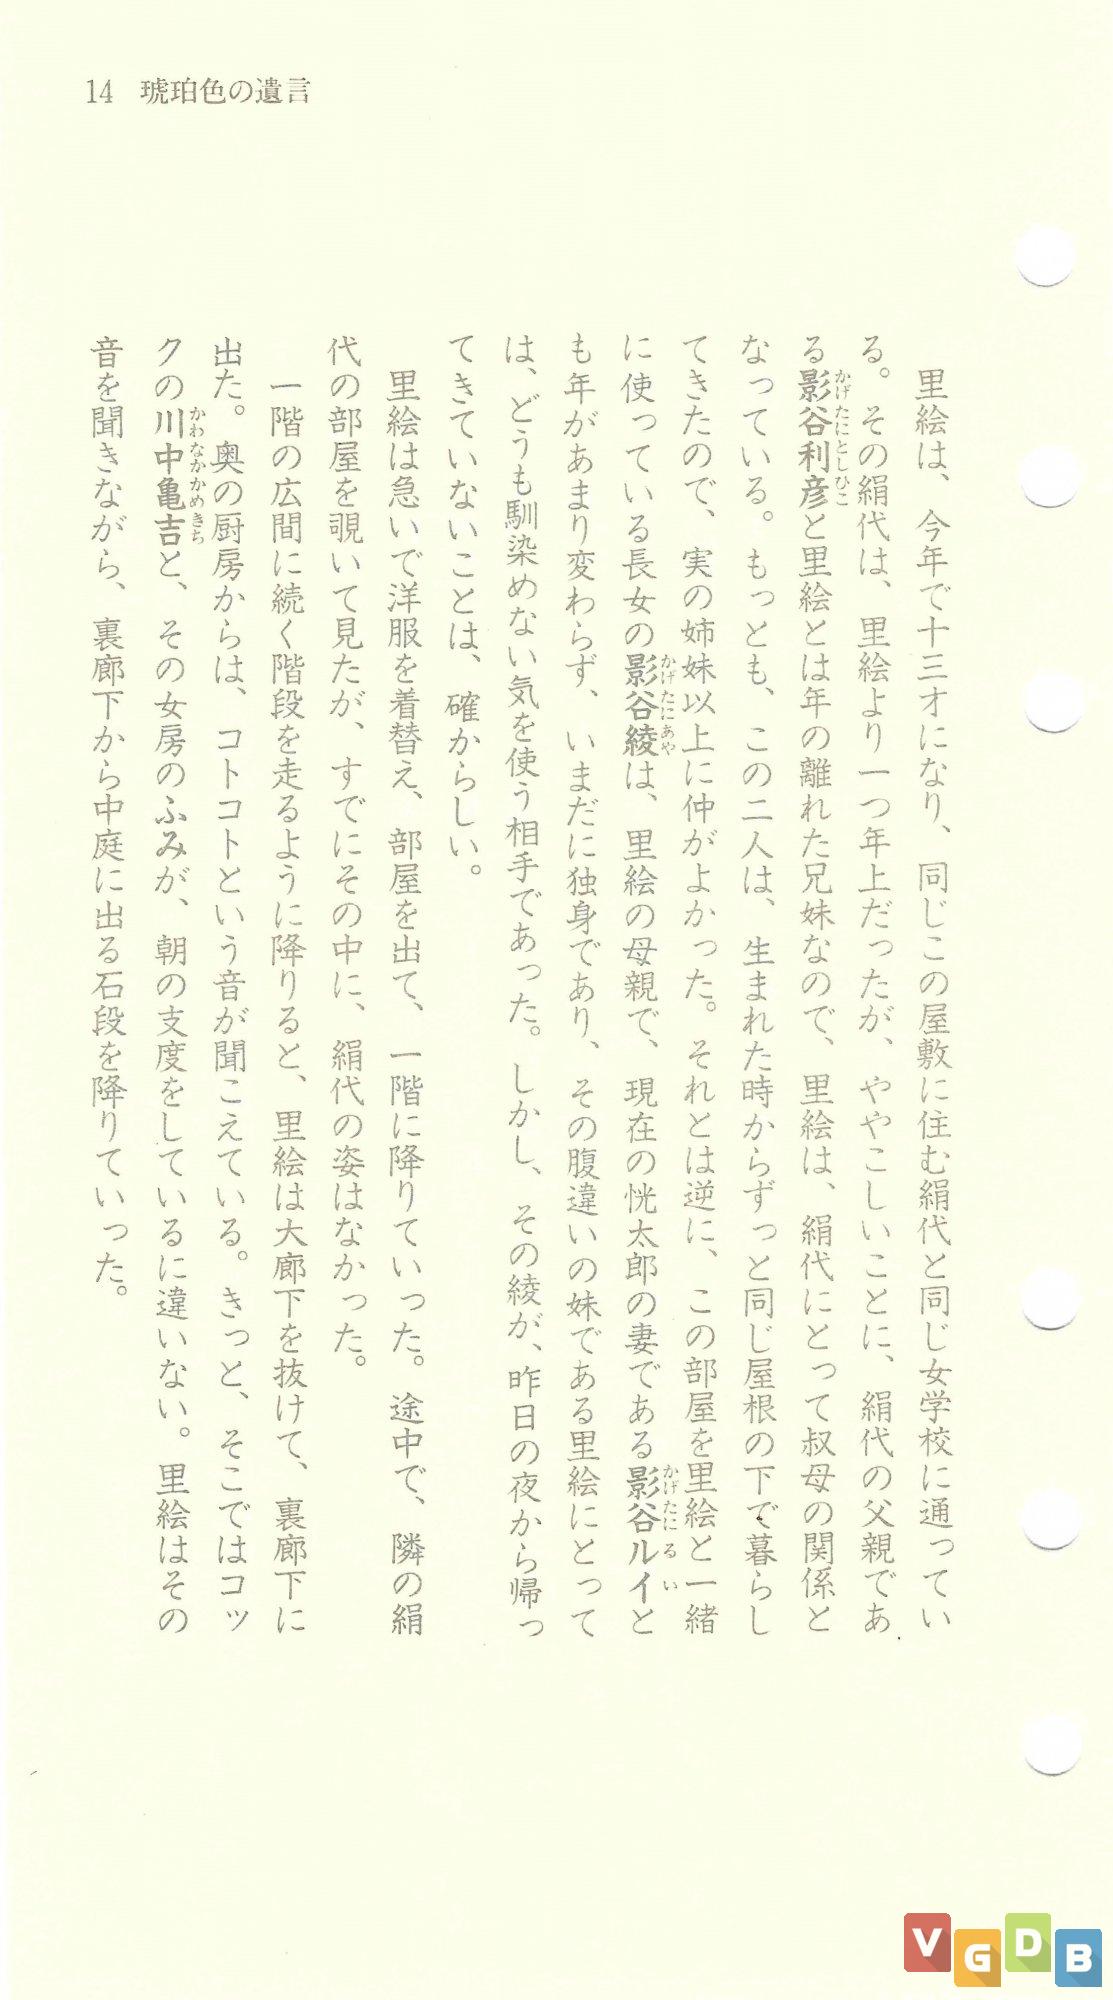 14 琥珀色の遺言
里絵は、今年で十三才になり、同じこの屋敷に住む絹代と同じ女学校に通ってい
る。その絹代は、里絵より一つ年上だったが、ややこしいことに、絹代の父親であ
る影谷利彦と里絵とは年の離れた兄妹なので、里絵は、絹代にとって叔母の関係と
かげたにとしひこ
なっている。もっとも、この二人は、生まれた時からずっと同じ屋根の下で暮らし
てきたので、実の姉妹以上に仲がよかった。それとは逆に、この部屋を里絵と一緒
に使っている長女の影谷綾は、里絵の母親で、現在の恍太郎の妻である影谷ルイと
かげたにあや
かげたにるい
も年があまり変わらず、いまだに独身であり、その腹違いの妹である里絵にとって
は、どうも馴染めない気を使う相手であった。しかし、その綾が、昨日の夜から帰っ
てきていないことは、確からしい。
里絵は急いで洋服を着替え、部屋を出て、一階に降りていった。途中で、隣の絹
代の部屋を覗いて見たが、すでにその中に、絹代の姿はなかった。
一階の広間に続く階段を走るように降りると、里絵は大廊下を抜けて、裏廊下に
出た。奥の厨房からは、コトコトという音が聞こえている。きっと、そこではコッ
クの川中亀吉と、その女房のふみが、朝の支度をしているに違いない。里絵はその
かわなかかめきち
音を聞きながら、裏廊下から中庭に出る石段を降りていった。
VGDB